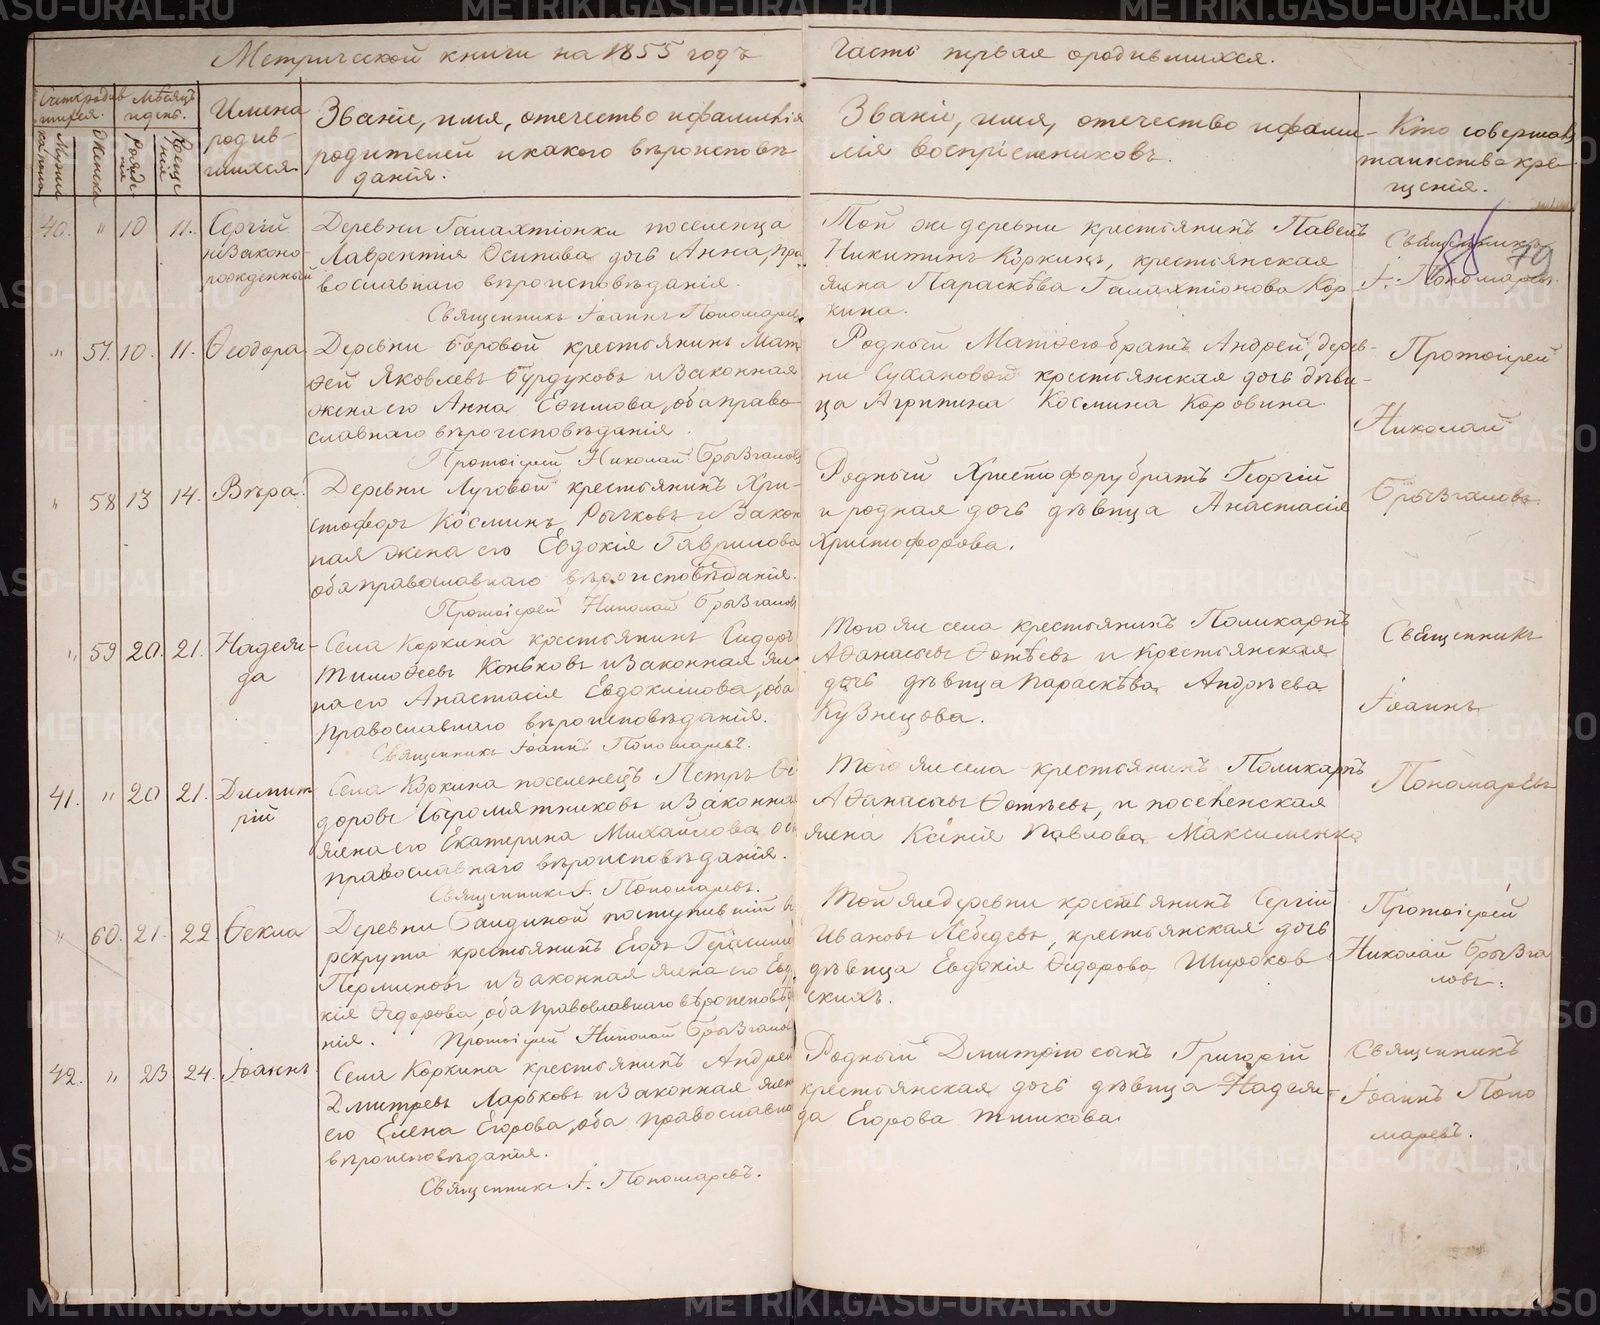 Метрической книги на 1855 годъ
часть первая о родившихся.
Счетъ родив
шихся.
Мѣсяцъ
и день.
Имена
родив-
шихся
Званіе, имя, отечество и фамилія
родителей и какого вѣроисповѣ
данія.
Званіе, имя, отечество и фами-
лія воспріемниковъ.
Кто совершалъ
таинство кре-
щенія.
Мужеска
Женска
79
40. " 10 11. Сергій
незаконо-
рожденный
Деревни Галактіонки поселенца
Лаврентія Осипова дочь Анна, пра
вославнаго вѣроисповѣданія.
Священникъ Іоаннъ Пономаревъ
Той же деревни крестьянинъ Павелъ
Никитинъ Коркинъ, крестьянская
жена Параскѣва Галактіонова Кор-
кина.
Священникъ
І. Пономаревъ.
" 57. 10. 11. Ѳеодора
Деревни Боровой крестьянинъ Мат
ѳей Яковлевъ Бурдуковъ и законная
жена его Анна Ефимова, оба право-
славнаго вѣроисповѣданія.
Протоіерей Николай Брызгаловъ
Родный Матѳею братъ Андрей, дерев-
ни Сухановой крестьянская дочь дѣви-
ца Агрипина Космина Коровина.
Протоіерей
Николай
Брызгаловъ.
" 58 13 14. Вѣра.
Деревни Луговой крестьянинъ Хри-
стофоръ Косминъ Рычковъ и закон
ная жена его Евдокія Гаврилова
оба православнаго вѣроисповѣданія.
Протоіерей Николай Брызгаловъ
Родный Христофору братъ Георгій
и родная дочь дѣвица Анастасія
Христофорова.
" 59 20. 21. Надеж-
да
Села Коркина крестьянинъ Сидоръ
Тимоѳеевъ Коньковъ и законная же-
на его Анастасія Евдокимова, оба
православнаго вѣроисповѣданія.
Священникъ Іоаннъ Пономаревъ.
Того же села крестьянинъ Поликарпъ
Аѳанасьевъ Ѳотѣевъ и крестьянская
дочь дѣвица Параскѣва Андреева
Кузнецова.
Священникъ
Іоаннъ
Пономаревъ
41. " 20 21. Димит
рій
Села Коркина поселенецъ Петръ Ѳе
доровъ Сыромятниковъ и законна
жена его Екатерина Михайлова, об
православнаго вѣроисповѣданія.
Священникъ І. Пономаревъ.
Того же села крестьянинъ Поликарпъ
Аѳанасьевъ Ѳотѣевъ, и поселенская
жена Ксенія Павлова Максименко
" 60. 21. 22. Ѳекла
Деревни Балдиной поступившій въ
рекрута крестьянинъ Егоръ Герасимо
Перминовъ и законная жена его Евдо
кія Ѳедорова, оба православнаго вѣроисповѣда
нія. Протоіерей Николай Брызгалов
Той же деревни крестьянинъ Сергій
Ивановъ Лебедевъ, крестьянская дочь
дѣвица Евдокія Ѳедорова Широков
скихъ.
Протоіерей
Николай Брызга
ловъ.
42. " 23 24. Іоаннъ
Села Коркина крестьянинъ Андрей
Дмитревъ Ларьковъ и законная жена
его Елена Егорова, оба православна
вѣроисповѣданія.
Священникъ І. Пономаревъ.
Родный Дмитрію сынъ Григорій
крестьянская дочь дѣвица Надеж-
да Егорова
Священникъ
Іоаннъ Поно
маревъ.
METRIKI.GASO-URAL.RU